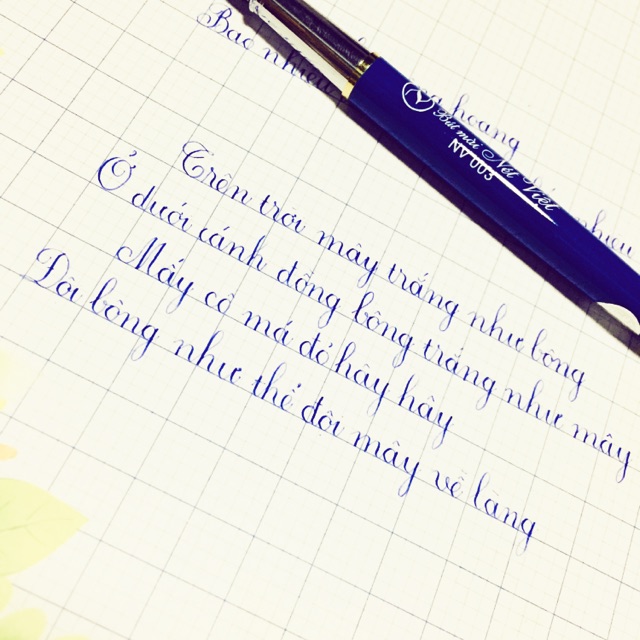 Bao nhiêu
hoang
nhiêu
Bút mài Nét Việt
NV 003
Trên trời mây trắng như bông
Ở dưới cánh đồng bông trắng như mây
Mấy cô má đỏ hây hây
Đội bông như thể đội mây về làng